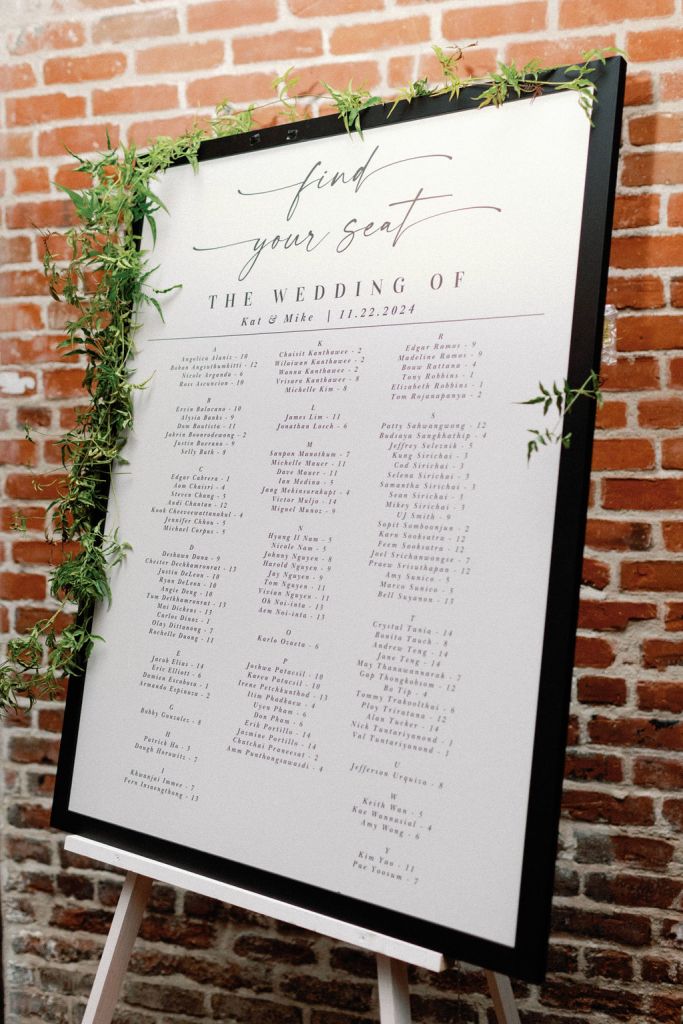 find
your seat
THE WEDDING OF
Kat & Mike | 11.22.2024
A
Angelica Alaniz - 10
Boban Angsuthumbitti - 12
Nicole Arganda - 6
Ross Ascuncion - 10
B
Ervin Balacana - 10
Alysia Banks - 9
Don Bautista - 5
Jakrin Boonrodewong - 2
Justin Buerano - 9
Sally Buth - 8
C
Edgar Cabrera - 1
Aom Chaisri - 4
Steven Chang - 5
Andi Chantan - 12
Kook Cheeveewattanakul - 4
Jennifer Chhou - 5
Michael Corpus - 5
D
Deshawn Dana - 9
Chester Decthamronrat - 13
Justin DeLeon - 10
Ryan DeLeon - 10
Angie Dong - 10
Tum Dethkamronrat - 13
Mai Dickens - 13
Carlos Dinoz - 1
Olay Dittanong - 7
Rochelle Duong - 11
E
Jacob Elias - 14
Eric Elliott - 6
Damien Escobosa - 1
Armando Espinoza - 2
G
Bobby Gonzalez - 8
H
Patrick Ha - 3
Dough Horowitz - 7
I
Khunnjai Immer - 7
Fern Insaengthong - 13
K
Chaisit Kanthawee - 2
Wilaiwan Kanthawee - 2
Wanna Kanthawee - 2
Vrisara Kanthawee - 8
Michelle Kim - 8
L
James Lim - 11
Jonathan Loech - 6
M
Sanpon Manothum - 7
Michelle Mauer - 11
Dave Mauer - 11
Ian Medina - 5
Jang Mekinsurakupt - 4
Victor Muljo - 14
Miguel Munoz - 9
N
Hyung Il Nam - 5
Nicole Nam - 5
Johnny Nguyen - 8
Harold Nguyen - 9
Jay Nguyen - 9
Tom Nguyen - 11
Vivian Nguyen - 11
Oh Noi-inta - 13
Aem Noi-inta - 13
O
Karlo Ozaeta - 6
P
Joshua Patacsil - 10
Karen Patacsil - 10
Irene Petchbunthod - 13
Itim Phadhaew - 4
Uyen Pham - 6
Don Pham - 6
Erik Portillo - 14
Jasmine Portillo - 14
Chatchai Praneesat - 2
Amm Punthongsawasdi - 4
R
Edgar Ramos - 9
Madeline Ramos - 9
Boow Rattana - 4
Tony Robbins - 1
Elizabeth Robbins - 1
Tom Rojanapanya - 2
S
Patty Sahwangwong - 12
Budsaya Sangkhathip - 4
Jeffrey Seleznik - 5
Kung Sirichai - 3
Cod Sirichai - 3
Selena Sirichai - 3
Samantha Sirichai - 3
Sean Sirichai - 3
Mikey Sirichai - 3
UJ Smith - 9
Sopit Somboonjun - 2
Karn Sooksatra - 12
Feem Sooksatra - 12
Joel Srichanwongse - 7
Praew Srisuthapan - 12
Amy Sunico - 5
Marco Sunico - 5
Bell Suyanon - 13
T
Crystal Tania - 14
Bonita Tauch - 8
Andrew Teng - 14
Jane Teng - 14
May Thanawannarak - 7
Gap Thongkobsom - 12
Bo Tip - 4
Tommy Trakoolthai - 6
Ploy Triratana - 12
Alan Tucker - 14
Nick Tuntariyanond - 1
Val Tuntariyanond - 1
U
Jefferson Urquiza - 8
W
Keith Wan - 5
Kae Wannasial - 4
Amy Wong - 6
Y
Kim Yau - 11
Pae Yoosum - 7